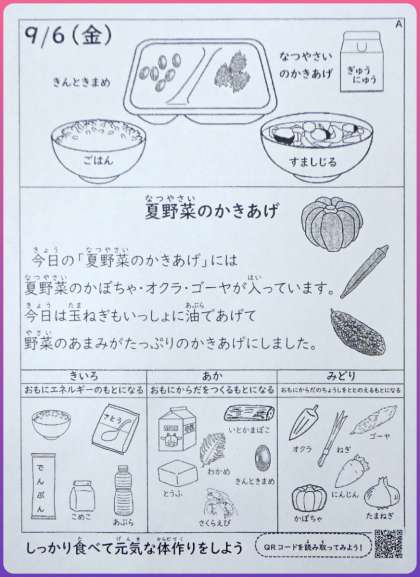 9/6（金）
A
きんときまめ
なつやさい
のかきあげ
ぎゅう
にゅう
ごはん
すましじる
なつやさい
夏野菜のかきあげ
きょう なつやさい
今日の「夏野菜のかきあげ」には
なつやさい はい
夏野菜のかぼちゃ・オクラ・ゴーヤが入っています。
きょう たま あぶら
今日は玉ねぎもいっしょに油であげて
やさい
野菜のあまみがたっぷりのかきあげにしました。
きいろ あか みどり
おもにエネルギーのもとになる おもにからだをつくるもとになる おもにからだのちょうしをととのえるもとになる
さとう
いとかまぼこ
オクラ
ねぎ
ゴーヤ
わかめ
でんぷん
とうふ
きんときまめ
にんじん
こめこ
あぶら
さくらえび
かぼちゃ
たまねぎ
た げんき からだづく
しっかり食べて元気な体作りをしよう
QRコードを読み取ってみよう!